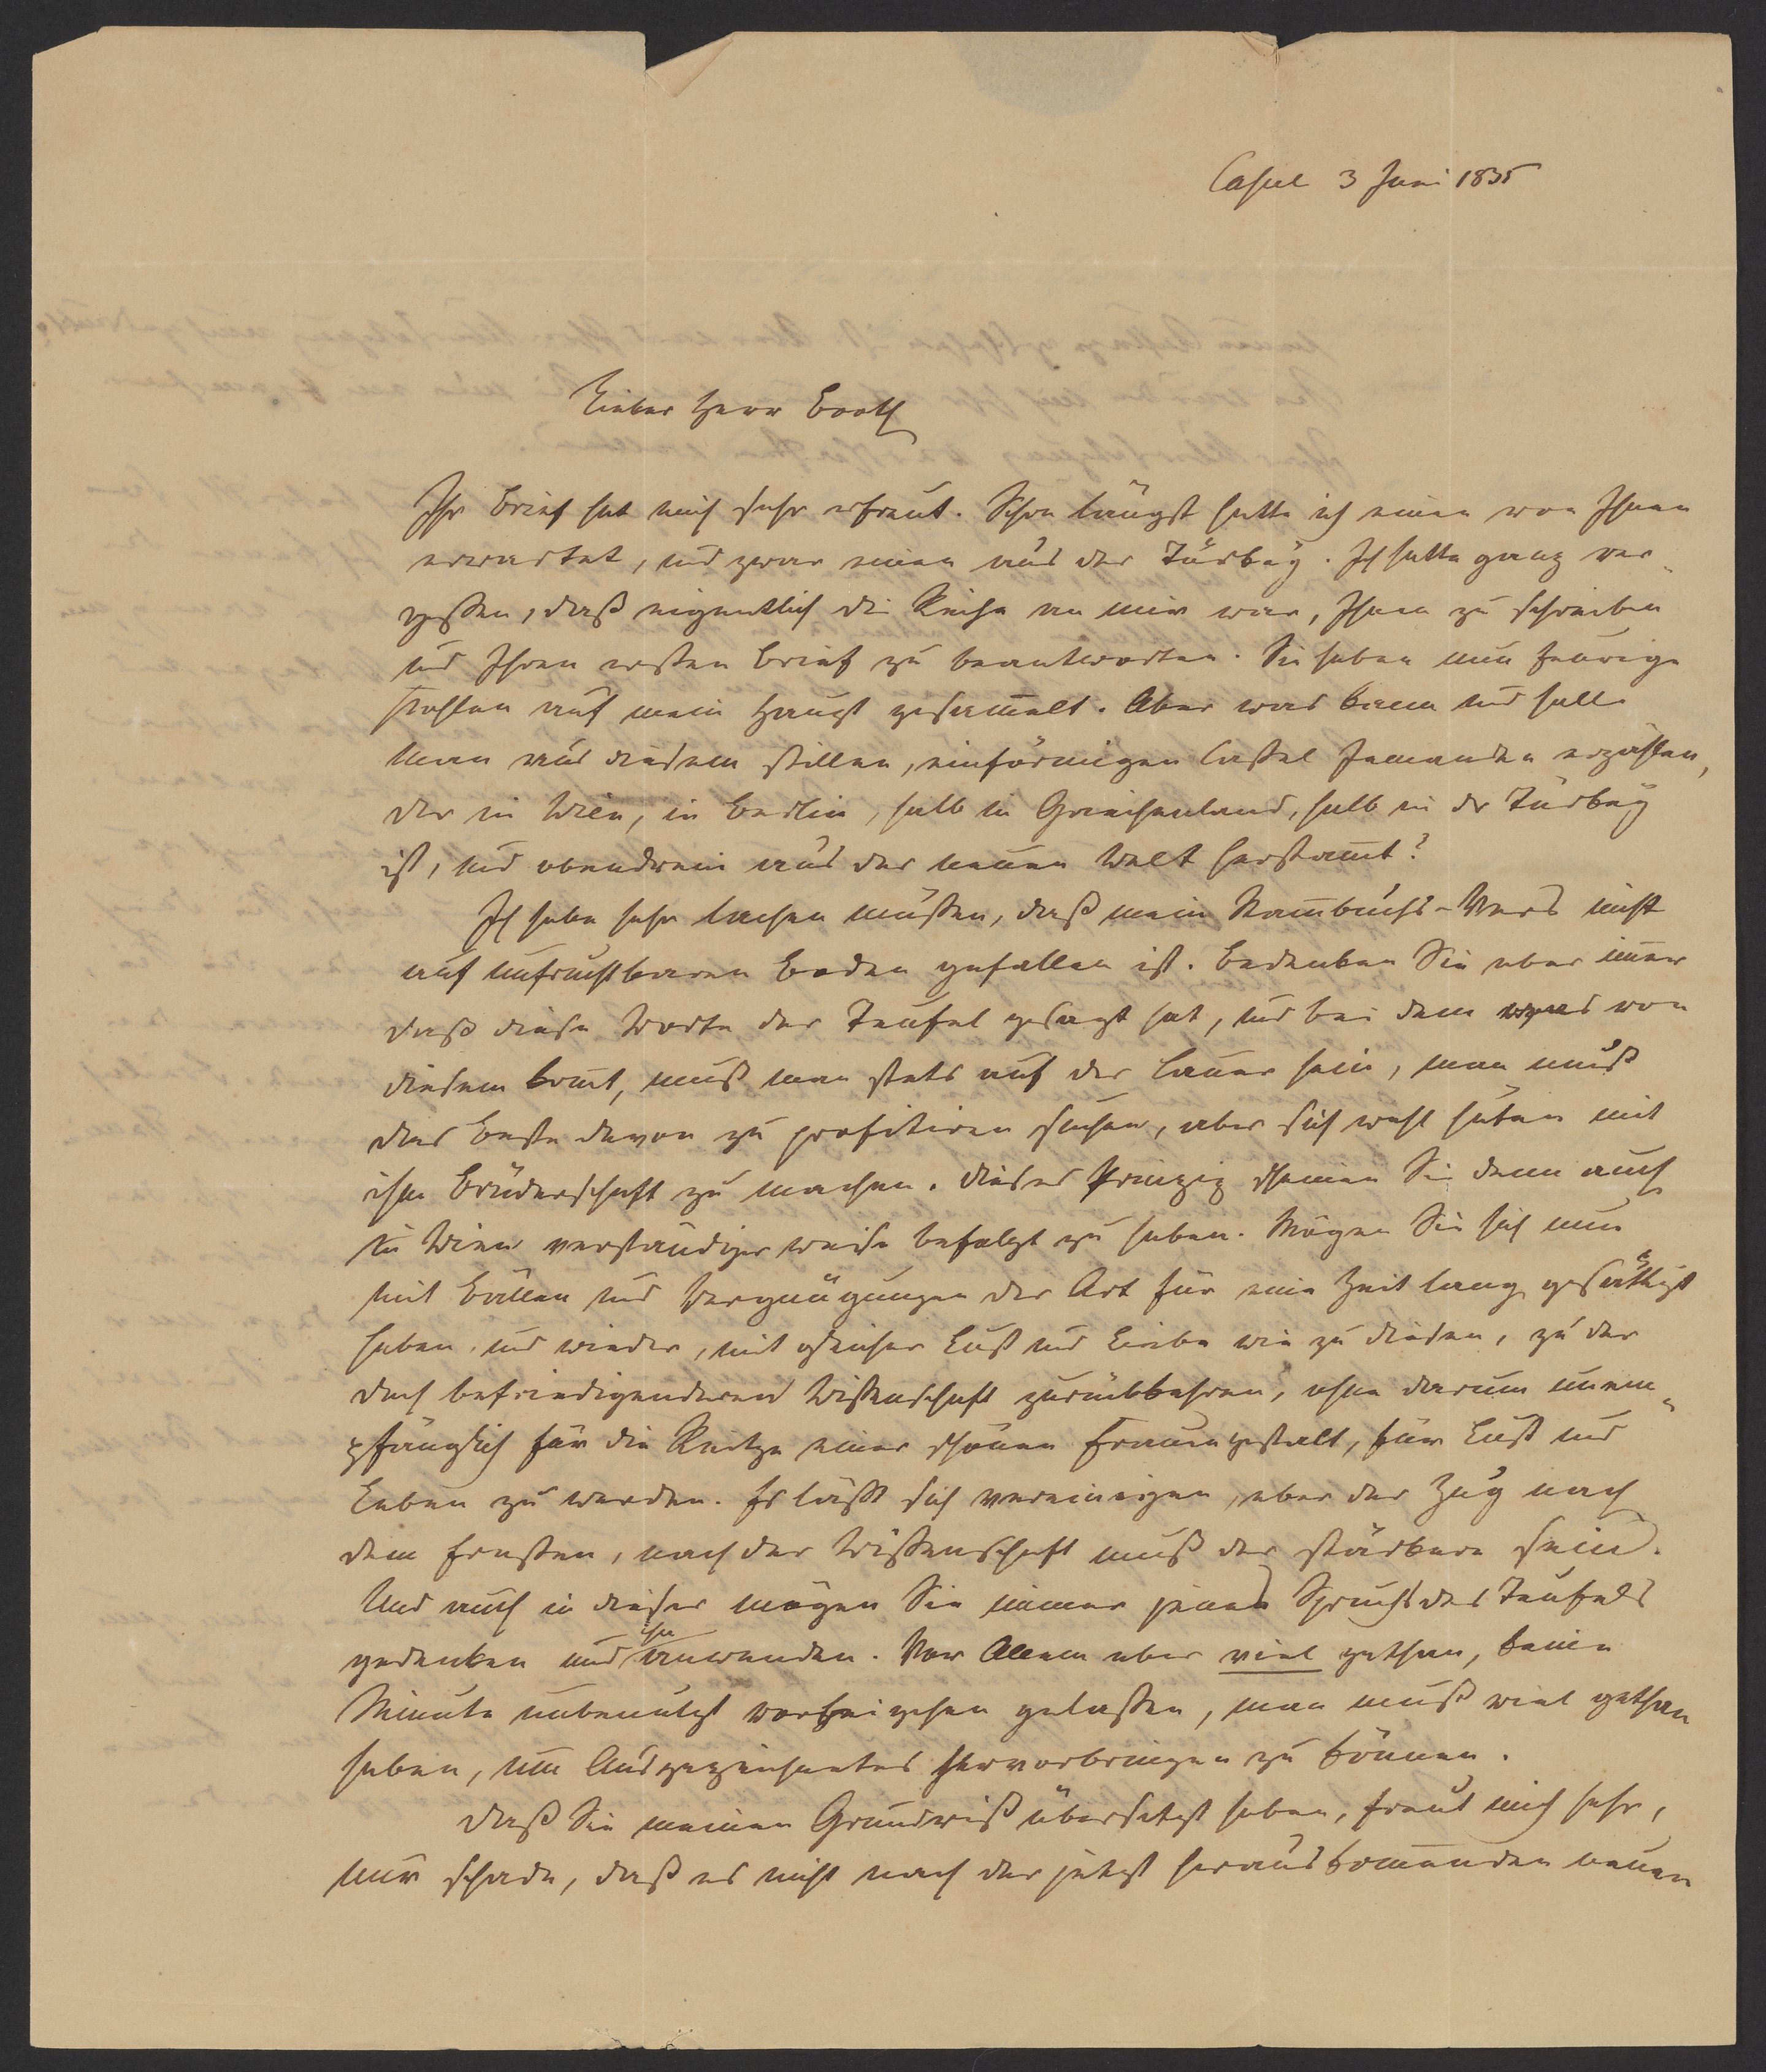 Cassel 3 Juni 1835
Lieber Herr Booth
Ihr Brief hat mich sehr erfreut. Schon längst hatte ich einen von Ihnen
erwartet, und zwar einen aus der Türkey. Ich hatte ganz ver-
gessen, daß eigentlich die Reihe an mir war, Ihnen zu schreiben
und Ihren ersten Brief zu beantworten. Sie haben nun feurige
Kohlen auf mein Haupt gesam̅elt. Aber was kann und soll
man aus diesem stillen, einförmigen Cassel Jemanden erzählen,
der in Wien, in Berlin, halb in Griechenland, halb in der Türkey
ist, und obendrein aus der neuen Welt herstam̅t?
Ich habe sehr lachen müssen, daß mein Stam̅buchs-Vers nicht
auf unfruchtbaren Boden gefallen ist. Bedenken Sie aber im̅er
daß diese Worte der Teufel gesagt hat, und bei dem was von
diesem kom̅t, muß man stets auf der Lauer sein, man muß
das Beste davon zu profitiren suchen, aber sich wohl hüten mit
ihm Brüderschaft zu machen. Dieses Prinzip scheinen Sie denn auch
in Wien verständiger weise befolgt zu haben. Mögen Sie sich nun
mit Bällen und Vergnügungen der Art für eine Zeit lang gesättigt
haben und wieder, mit gleicher Lust und Liebe wie zu diesen, zu der
doch befriedigenderen Wissenschaft zurückkehren, ohne darum unem-
pfänglich für die Reitze einer schönen Frauengestalt, für Lust und
Leben zu werden. Es läßt sich vereinigen, aber der Zug nach
dem Ernsten, nach der Wissenschaft muß der stärkere sein.
Und auch in dieser mögen Sie immer jenes Spruchs des Teufels
gedenken und ihn anwenden. Vor Allem aber viel gethan, keine
Minute unbenutzt vorbeigehen gelassen, man muß viel gethan
haben, um Ausgezeichnetes hervorbringen zu können.
Daß Sie meinen Grundriß übersetzt haben, freut mich sehr,
nur schade, daß es nicht nach der jetzt herauskom̅enden neuen